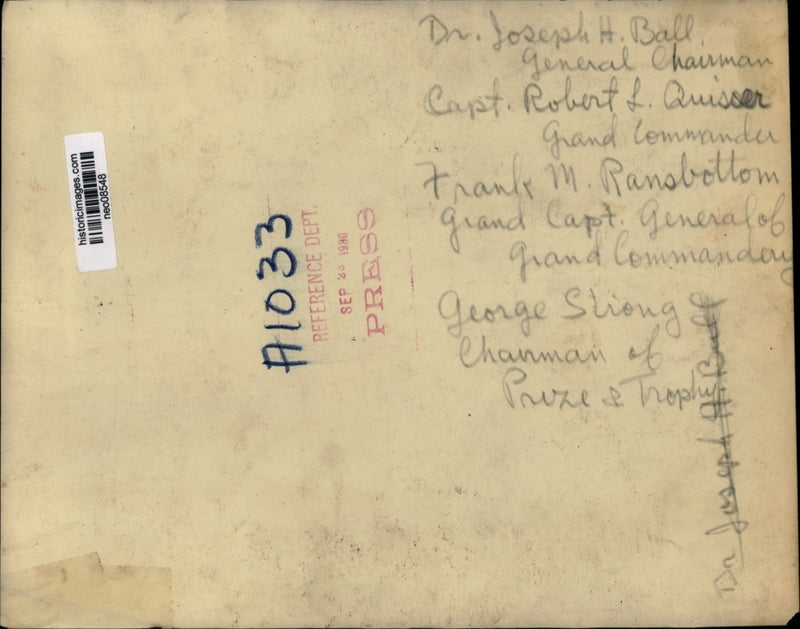 Dr. Joseph H. Ball
General Chairman
Capt. Robert L. Quisser
Grand Commander
Frank M. Ransbottom
Grand Capt. General of
Grand Commandery
George Strong
Chairman of
Prize & Trophy
Dr Joseph H. Ball
A1033
REFERENCE DEPT.
SEP 20 1930
PRESS
historicimages.com
neo08548